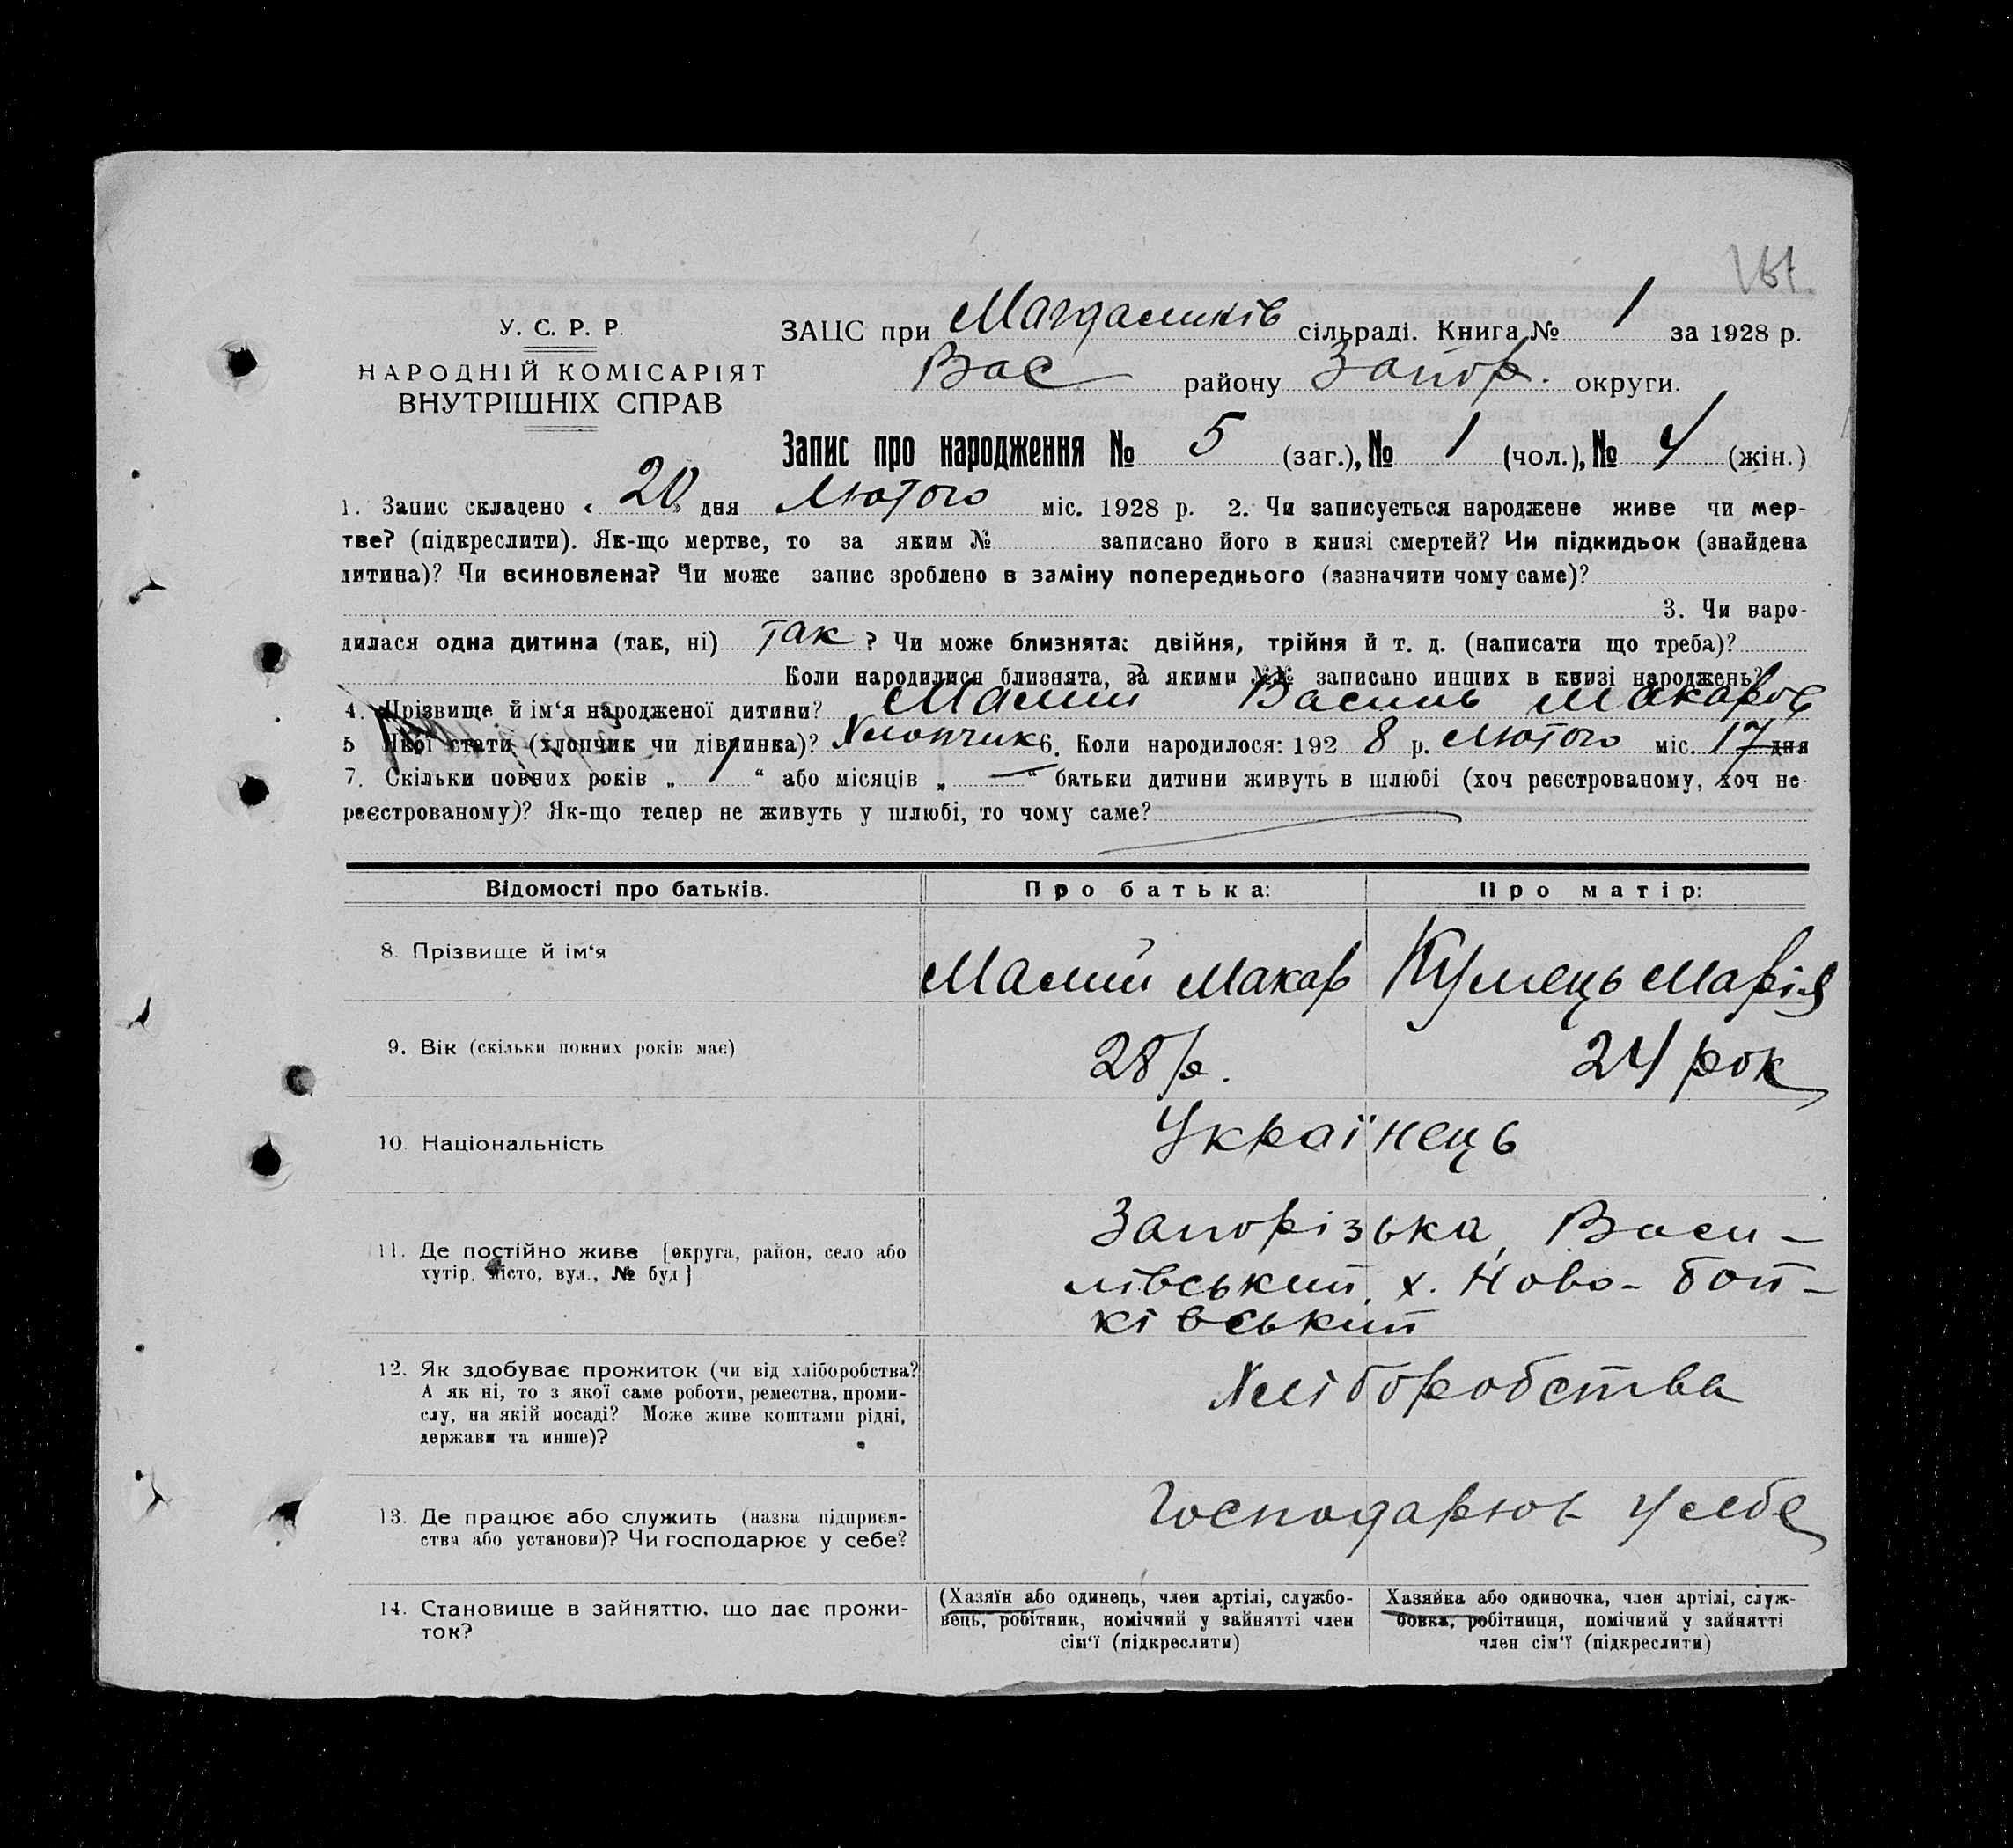 У. С. Р. Р.
НАРОДНІЙ КОМІСАРІЯТ
ВНУТРІШНІХ СПРАВ
ЗАЦС при Магдалинків сільраді. Книга № 1 за 1928 р.
Вас району Запор. округи.
Запис про народження № 5 (заг.), № 1 (чол.), № 4 (жін.)
1. Запис складено « 20 » дня Лютого міс. 1928 р. 2. Чи записується народжене живе чи мер-
тве? (підкреслити). Як-що мертве, то за яким № записано його в книзі смертей? Чи підкидьок (знайдена
дитина)? Чи всиновлена? Чи може запис зроблено в заміну попереднього (зазначити чому саме)?
3. Чи наро-
дилася одна дитина (так, ні) так ? Чи може близнята: двійня, трійня й т. д. (написати що треба)?
Коли народилися близнята, за якими №№ записано инших в книзі народжень?
4. Прізвище й ім‘я народженої дитини? Малий Василь Макаров
5 Якої стати (хлопчик чи дівчинка)? Хлопчик 6. Коли народилося: 192 8 р. Лютого міс. 17 дня
7. Скільки повних років „ 1 “ або місяців „ — “ батьки дитини живуть в шлюбі (хоч реєстрованому, хоч не-
реєстрованому)? Як-що тепер не живуть у шлюбі, то чому саме?
Відомості про батьків. Про батька: Про матір:
8. Прізвище й ім‘я Малий Макар Кулмець Марія
9. Вік (скільки повних років має) 28 р. 24 рок
10. Національність Українець
11. Де постійно живе [округа, район, село або
хутір, місто, вул., № буд]
Запорізька, Васи-
лівський, х. Ново-бой-
ківський
12. Як здобуває прожиток (чи від хліборобства?
А як ні, то з якої саме роботи, ремества, проми-
слу, на якій посаді? Може живе коштами рідні,
держави та инше)?
Хліборобства
13. Де працює або служить (назва підприєм-
ства або установи)? Чи господарює у себе?
Господарює у себе
14. Становище в зайняттю, що дає прожи-
ток?
(Хазяїн або одинець, член артілі, службо-
вець, робітник, помічний у зайнятті член
сім‘ї (підкреслити)
Хазяйка або одиночка, член артілі, служ-
бовка, робітниця, помічний у зайнятті
член сім‘ї (підкреслити)